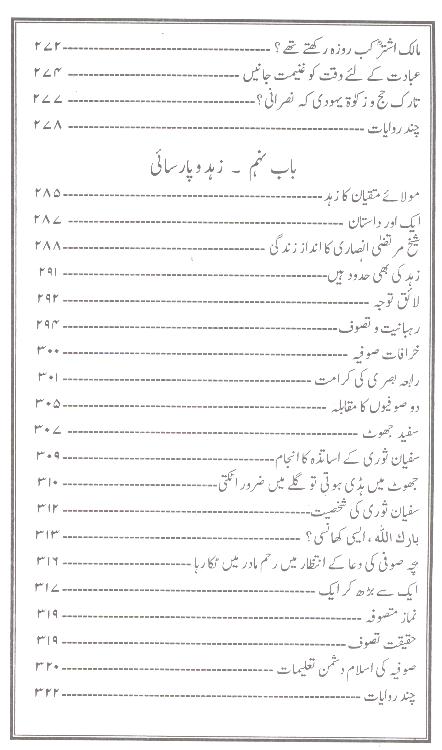 مالک اشتر کب روزہ رکھتے تھے؟ ۲۷۲
عبادت کے لئے وقت کو غنیمت جانیں ۲۷۴
تارک حج و زکوٰۃ یہودی کہ نصرانی؟ ۲۷۷
چند روایات ۲۷۸
باب نہم ۔ زہد و پارسائی
مولائے متقیان کا زہد ۲۸۵
ایک اور داستان ۲۸۷
شیخ مرتضیٰ انصاری کا انداز زندگی ۲۸۸
زہد کی بھی حدود ہیں ۲۹۱
لائق توجہ ۲۹۲
رہبانیت و تصوف ۲۹۴
خرافات صوفیہ ۳۰۰
رابعہ بصری کی کرامت ۳۰۱
دو صوفیوں کا مقابلہ ۳۰۵
سفید جھوٹ ۳۰۷
سفیان ثوری کے اساتذہ کا انجام ۳۰۹
جھوٹ میں ہڈی ہوتی تو گلے میں ضرور اٹکتی ۳۱۰
سفیان ثوری کی شخصیت ۳۱۲
بارک اللہ، ایسی کھانسی؟ ۳۱۳
بچہ صوفی کی دعا کے انتظار میں رحم مادر میں ٹکا رہا ۳۱۶
ایک سے بڑھ کر ایک ۳۱۷
نماز متصوفہ ۳۱۹
حقیقت تصوف ۳۱۹
صوفیہ کی اسلام دشمن تعلیمات ۳۲۰
چند روایات ۳۲۲